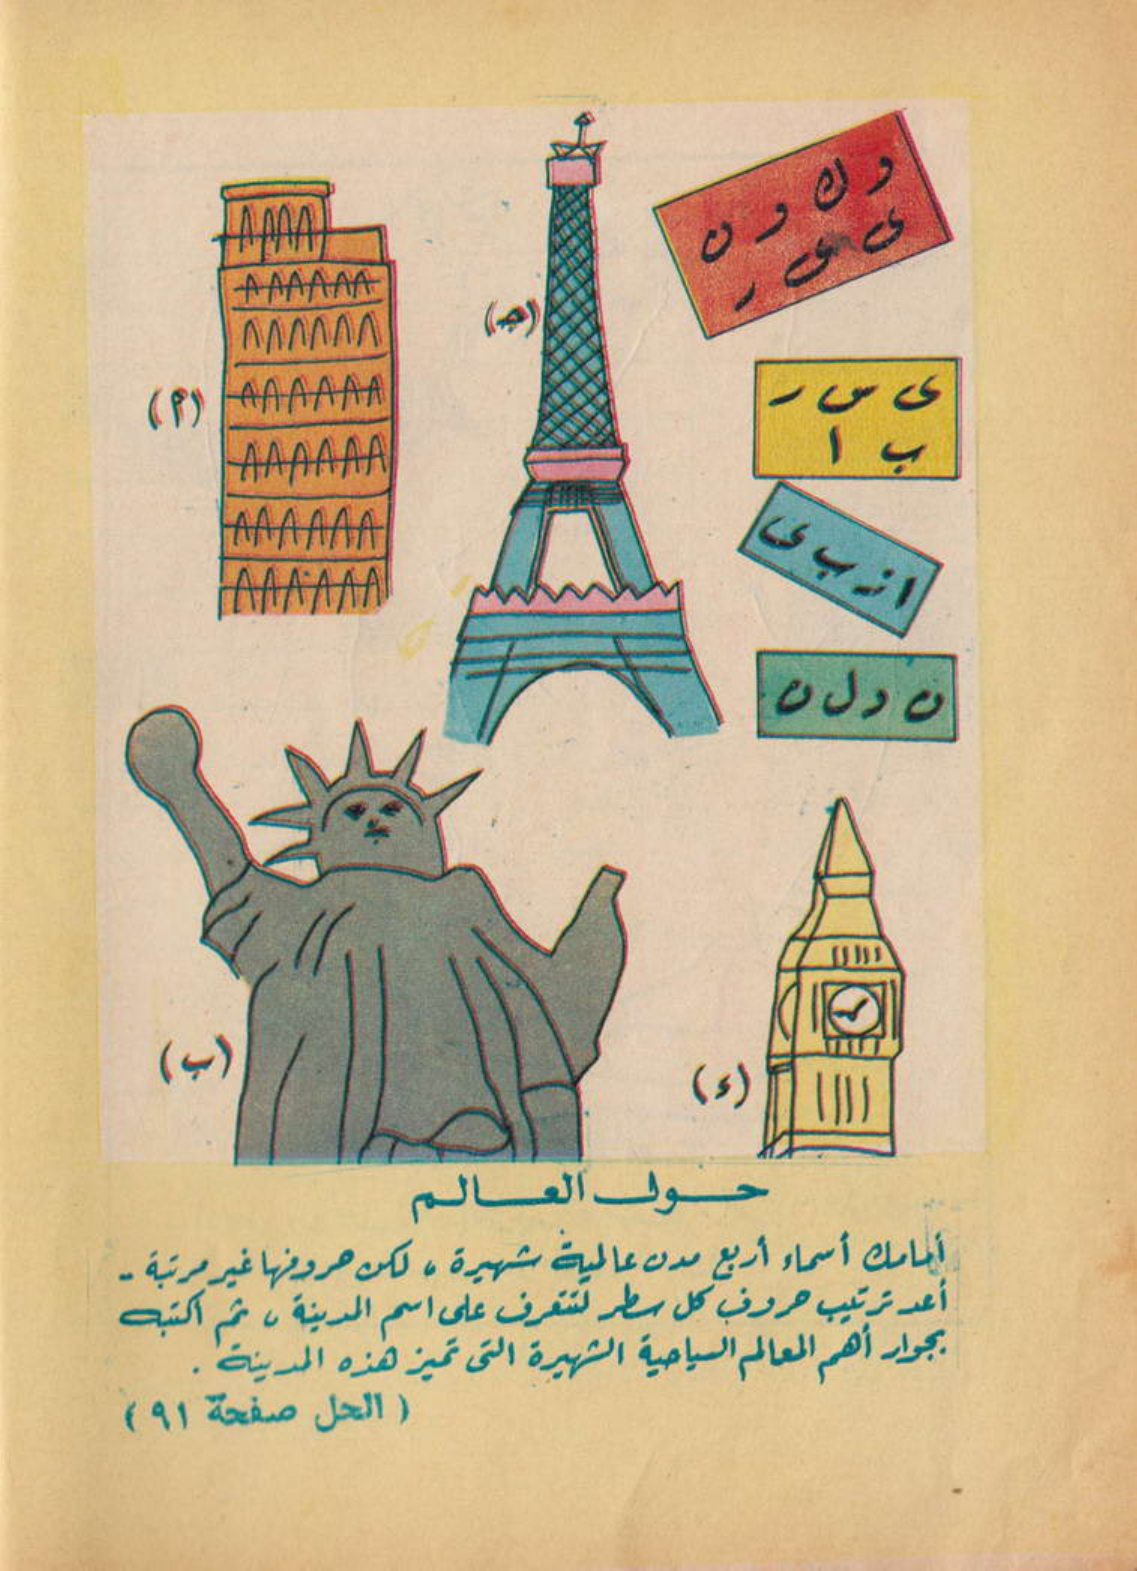 و ك و ن
ى ى ر
(جـ)
ى س ر
ب ا
(أ)
ا ز ب ى
ن د ل ن
(ب)
(د)
حول العالم
أمامك أسماء أربع مدن عالمية شهيرة ، لكن حروفها غير مرتبة -
أعد ترتيب حروف كل سطر لتتعرف على اسم المدينة ، ثم اكتبه
بجوار أهم المعالم السياحية الشهيرة التى تميز هذه المدينة .
( الحل صفحة ٩١ )